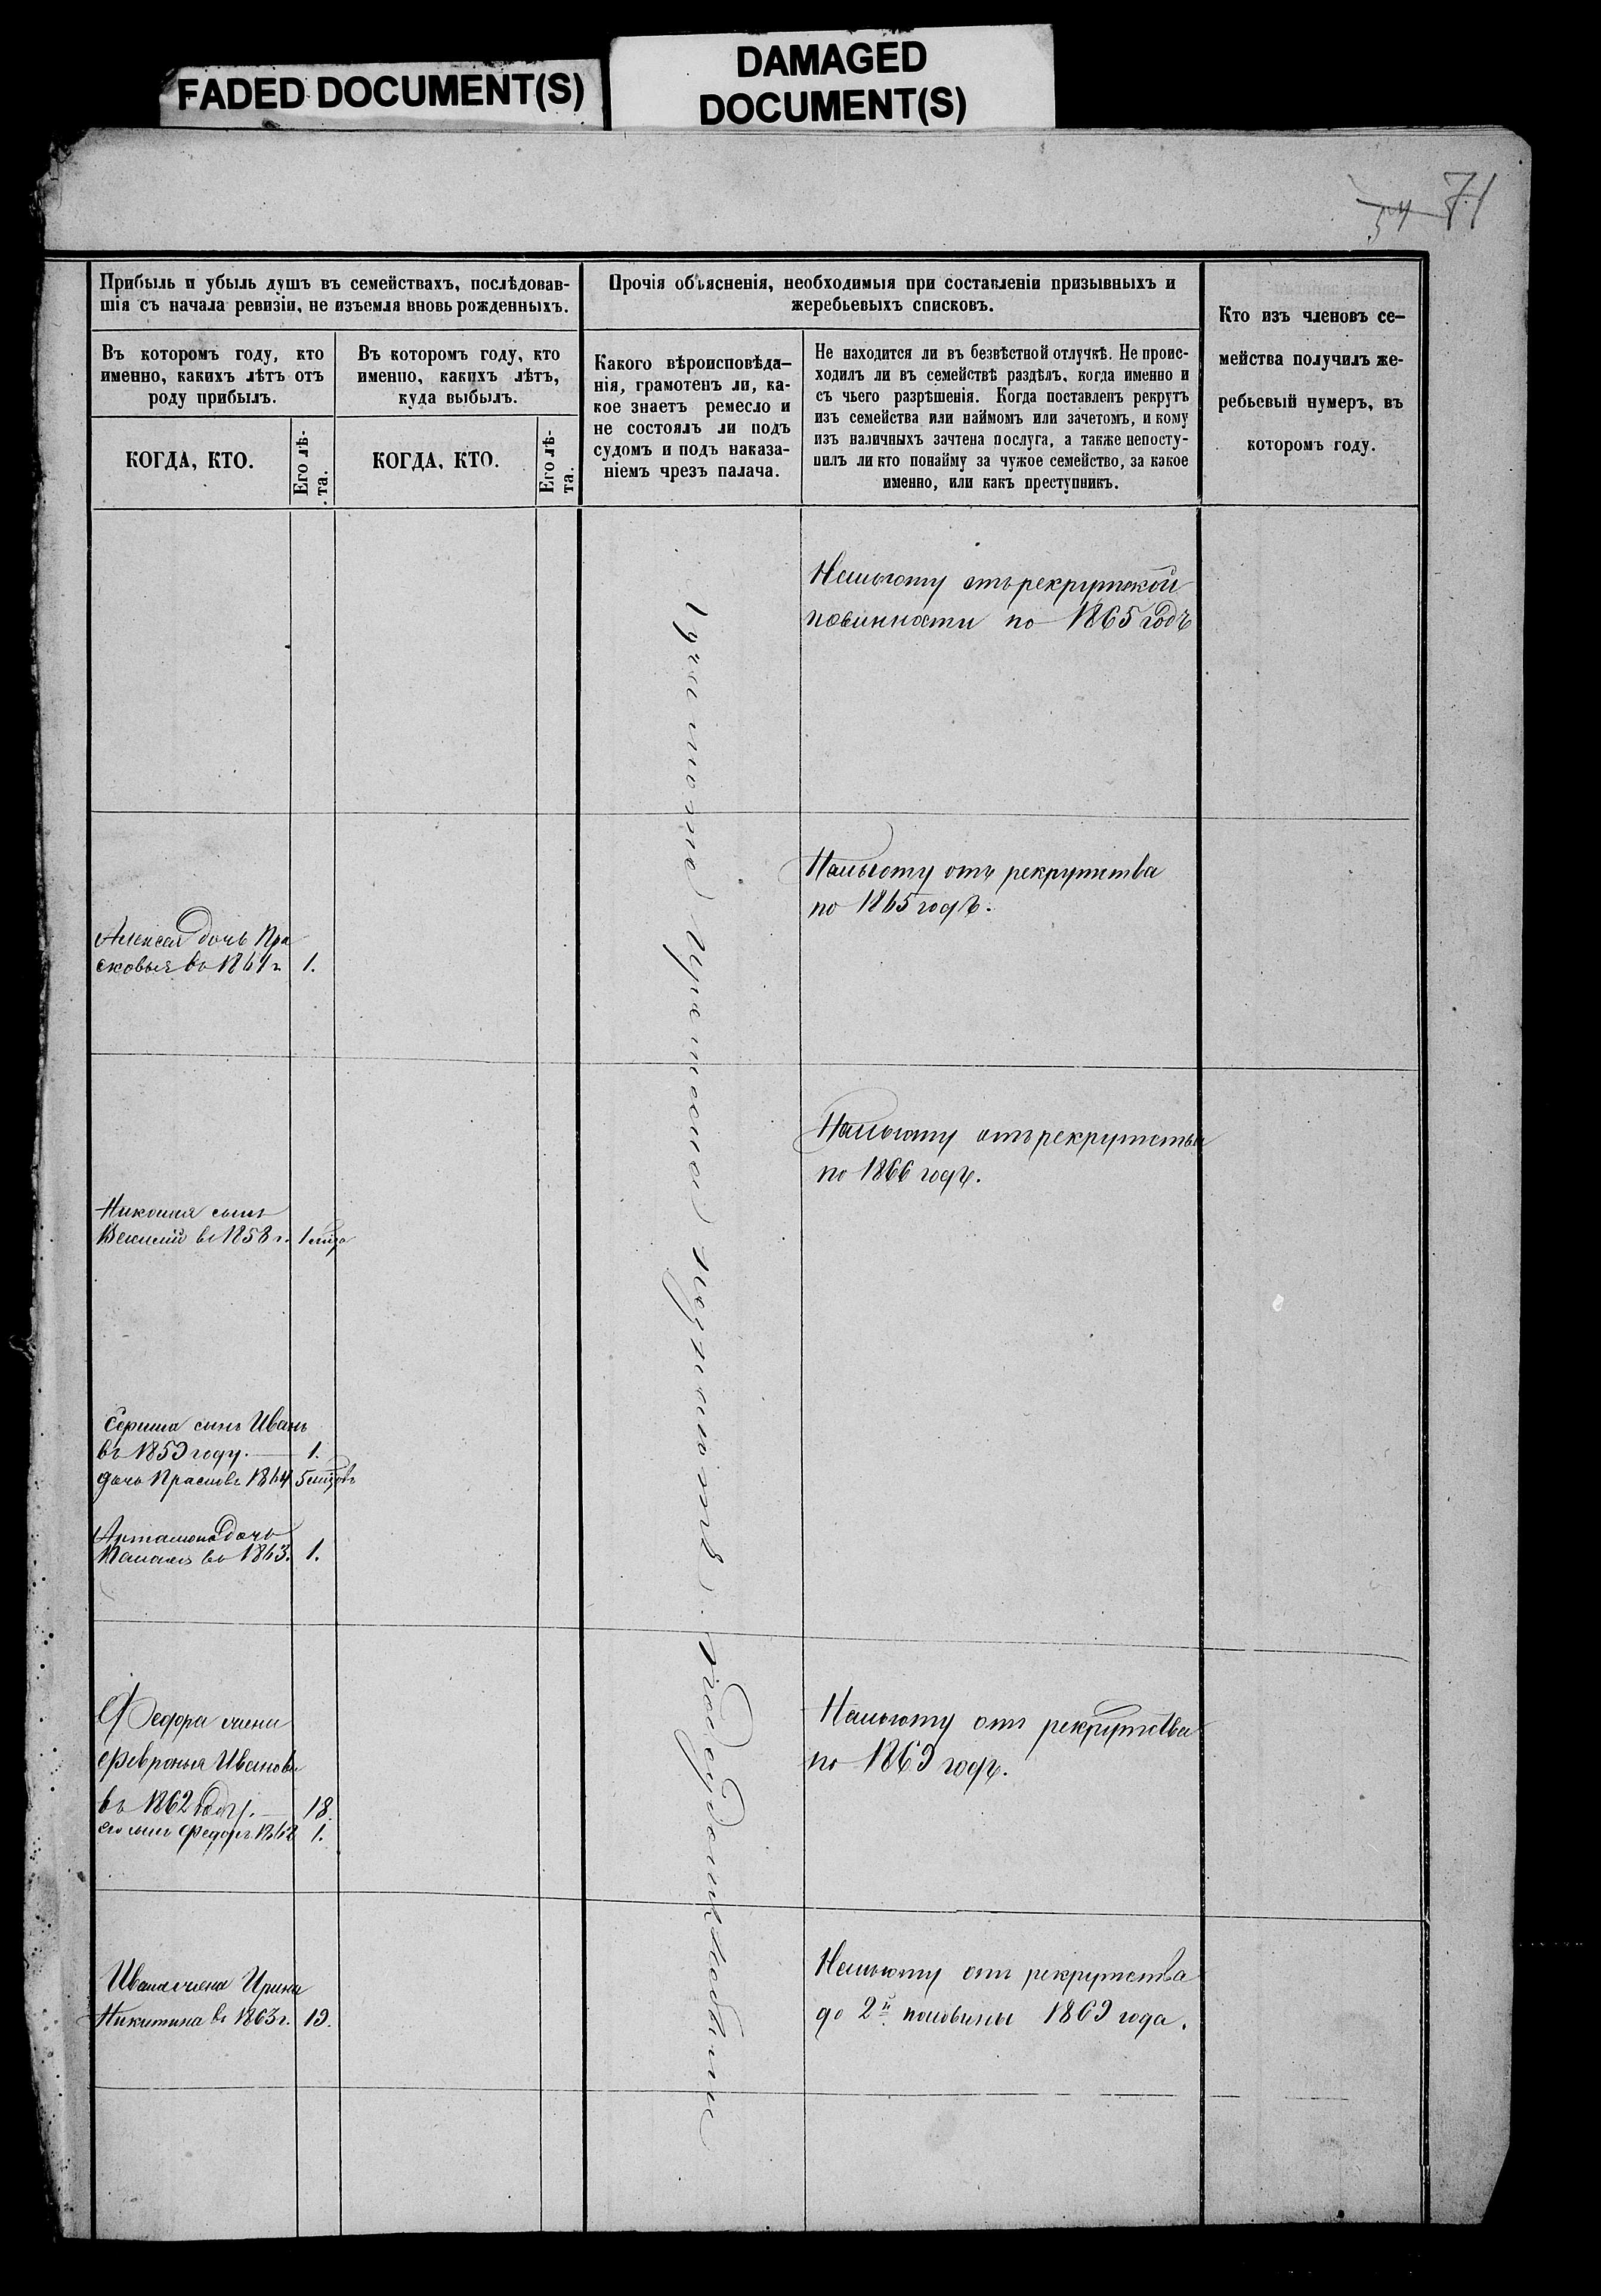 FADED DOCUMENT(S)
DAMAGED
DOCUMENT(S)
54 71
Прибыль и убыль душъ въ семействахъ, послѣдовав-
шія съ начала ревизіи, не изъемля вновь рожденныхъ.
Прочія объясненія, необходимыя при составленіи призывныхъ и
жеребьевыхъ списковъ.
Кто изъ членовъ се-
мейства получилъ же-
ребьевый нумеръ, въ
которомъ году.
Въ которомъ году, кто
именно, какихъ лѣтъ отъ
роду прибылъ.
Въ которомъ году, кто
именно, какихъ лѣтъ,
куда выбылъ.
Какого вѣроисповѣда-
нія, грамотенъ ли, ка-
кое знаетъ ремесло и
не состоялъ ли подъ
судомъ и подъ наказа-
ніемъ чрезъ палача.
Не находится ли въ безвѣстной отлучкѣ. Не проис-
ходилъ ли въ семействѣ раздѣлъ, когда именно и
съ чьего разрѣшенія. Когда поставленъ рекрутъ
изъ семейства или наймомъ или зачетомъ, и кому
изъ наличныхъ зачтена послуга, а также непосту-
пилъ ли кто понайму за чужое семейство, за какое
именно, или какъ преступникъ.
КОГДА, КТО.
Его лѣ-
та.
КОГДА, КТО.
Его лѣ-
та.
На льготу отъ рекрутской
повинности по 1865 годъ
На льготу отъ рекрутства
по 1865 годъ.
Алексея дочь Пра
сковья въ 1861 г. 1.
На льготу отъ рекрутства
по 1866 годъ.
Николая сынъ
въ 1858 г. 1
сынъ Иванъ
въ 1859 году. 1.
дочь 1864 5
Артамона дочь
въ 1863. 1.
Федора жена
Февронья Иванова
въ 1862 году. 18.
его сынъ Федоръ 1862 1.
На льготу отъ рекрутства
по 1869 годъ.
Ивана жена Ирина
Никитина въ 1863 г. 19.
На льготу отъ рекрутства
до 2й половины 1869 года.